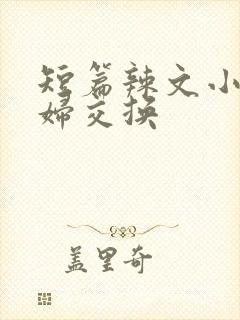 短篇辣文小
婦交换
盖里奇